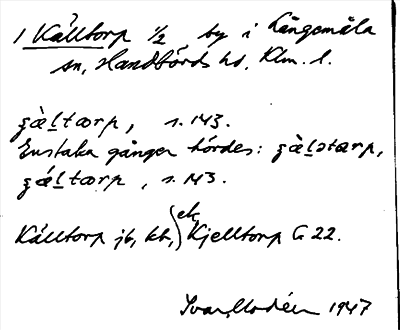 1 Källtorp 1/2 by i Långemåla
sn, Handbörds hd, Klm. l.
ʒæ̀ḷtærp, s. 143.
Enstaka gånger hördes: ʒæ̀ḷətærp,
ʒǽḷtærp, s. 143.
Källtorp jb, kb, ek, Kjelltorp G 22.
Ivar Modéer 1947